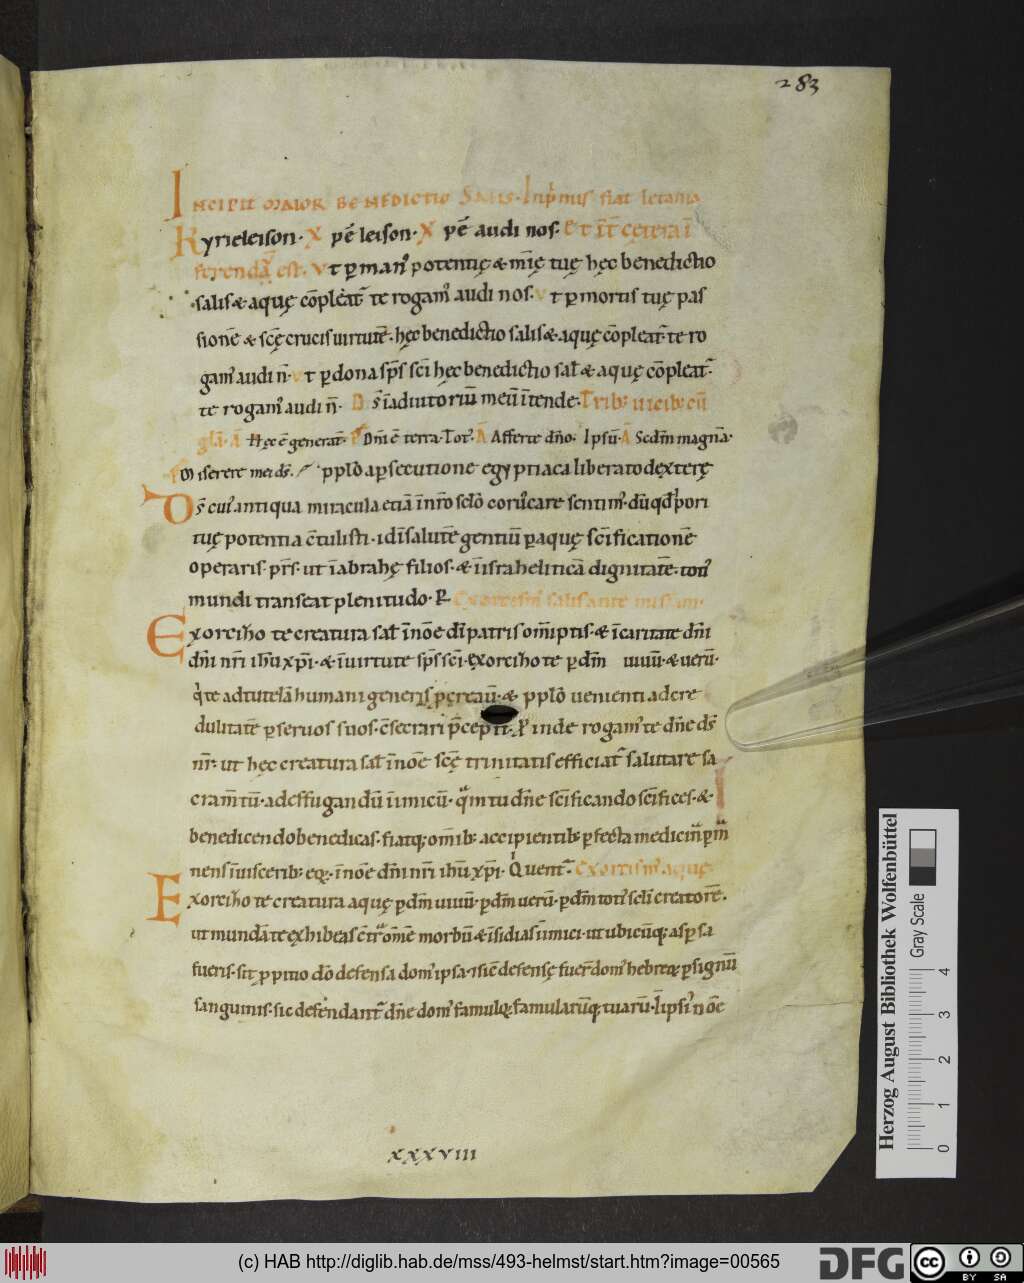 283
Incipit maior benedictio salis. Inprimis fiat letania
Kyrieleison. Xpē leison. Xpē audi nos. Et īt cetera
ferenda est. Vt ꝑ man potentię & mīę tuę hęc benedictio
salis & aquę cōpleat te rogam audi nos. Vt ꝑ mortis tuę pas
sionē & scē crucis uirtutē. hęc benedictio salis & aquę cōpleat te ro
gam audi n̄. Vt ꝑ dona sp̄s sc̄i hęc benedictio sal & aquę cōpleat
te rogam audi n̄. Ds̄ ī adiutoriū meū ītende. Trib uicib cū
gła. A Hęc ē generat. Dn̄i ē terra. Tot. A Afferte dn̄o. Ipsū. A Scdm magnā.
Miserere mei ds̄. pplō a ꝑsecutione egyptiaca liberato dexterę
Ds̄ cui antiqua miracula etiā ī nr̄o sclō coruscare sentim. dū qd pori
tuę potentia c̄tulisti. id ī salutē gentiū ꝑ aquę sc̄ificationē
operaris. pr̄s. ut ī abrahę filios. & ī israheliticā dignitatē. toti
mundi transeat plenitudo. P. Exorcism salis ante missam.
Exorcizo te creatura sal ī nōe dī patris omīptis. & ī caritate dn̄i
dn̄i nr̄i ihū xp̄i. & ī uirtute sp̄s sc̄i. exorcizo te ꝑ dm̄ uiuū. & uerū.
q te ad tutelā humani generis ꝓcreau. & pplō uenienti ad cre
dulitatē ꝑ seruos suos. c̄secrari p̄cepit. ꝓinde rogam te dn̄e ds̄
nr̄. ut hęc creatura sal ī nōe scē trinitatis efficiat salutare sa
cram̄tū. ad effugandū inimicū. qm tu dn̄e sc̄ificando sc̄ifices. &
benedicendo benedicas. fiatq; omīb accipientib ꝑfecta medicina ꝑm
nens ī uiscerib eoꝝ. ī nōe dn̄i nr̄i ihū xp̄i. Q uent. Exorcism aquę
Exorcizo te creatura aquę ꝑ dm̄ uiuū. ꝑ dm̄ uerū. ꝑ dm̄ toti scli creatorē.
ut mundā te exhibeas c̄tra omē morbū & īsidias īimici. ut ubicūq; aspsa
fueris. sit ꝑ ꝑpitio dō defensa dom ipsa. sic defensę fuer dom hebreoꝝ ꝑ signū
sanguinis. sic defendant dn̄e dom famuloꝝ famularūq; tuarū. ł ipsi nōe
xxxviii
Herzog August Bibliothek Wolfenbüttel
Gray Scale
0 1 2 3 4
(c) HAB http://diglib.hab.de/mss/493-helmst/start.htm?image=00565
DFG
cc BY SA